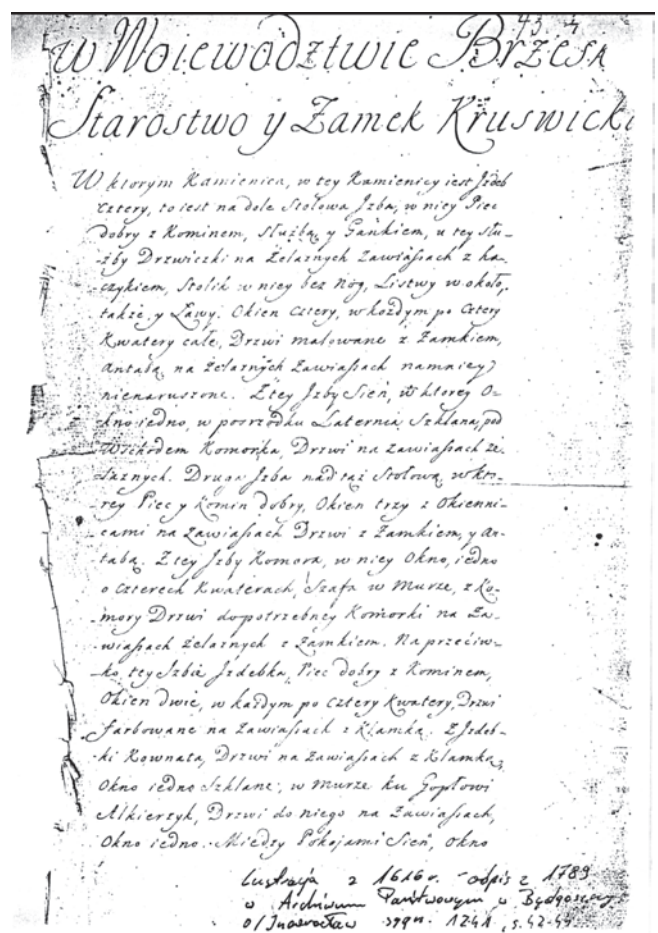 43. 4
w Woiewodztwie Brzesk
Starostwo y Zamek Kruswicki
W ktorym Kamienica, w tey Kamienicy iest Jzdeb
cztery, to iest na dole Stolowa Jzba, w niey Piec
dobry z Kominem, Służbą y Gankiem, u tey słu-
-żby Drzwiczki na Żelaznych Zawiaſsach z ha-
czykiem, Stolik w niey bez Nog, Listwy w około,
także y Ławy. Okien Cztery, w kożdym po Cztery
Kwatery całe, Drzwi malowane z Zamkiem,
Antabą na żelaznych Zawiaſsach namniey
nienaruszone. Z tey Jzby Sień, w ktorey O-
-kno iedno, w posrzodku Laternia Szklana, pod
Wschodem Komorka, Drzwi na zawiaſsach że-
-laznych. Druga Jzba nad taż Stolową, w kto-
-rey Piec y Komin dobry, Okien trzy z Okienni-
-cami na zawiaſsach Drzwi z Zamkiem, y An-
-tabą. Z tey Jzby Komora, w niey Okno, iedno
o czterech Kwaterach, Szafa w Murze, z Ko-
-mory Drzwi do potrzebney Komorki na Za-
-wiaſsach żelaznych z Zamkiem. Na przeciw-
-ko tey Jzbie Jzdebka, Piec dobry z Kominem,
Okien Dwie, w każdym po cztery Kwatery, Drzwi
farbowane na Zawiaſsach z Klamką. Z Jzdeb-
-ki Kownata, Drzwi na Zawiaſsach z Klamką,
Okno iedno Szklane, w murze ku Gopłowi
Alkierzyk, Drzwi do niego na Zawiaſsach,
Okno iedno. Między Pokojami Sień, Okno
Lustracja z 1616 r. - odpis z 1789
w Archiwum Państwowym w Bydgoszczy
o/Inowrocław sygn. 1241, s. 42-44